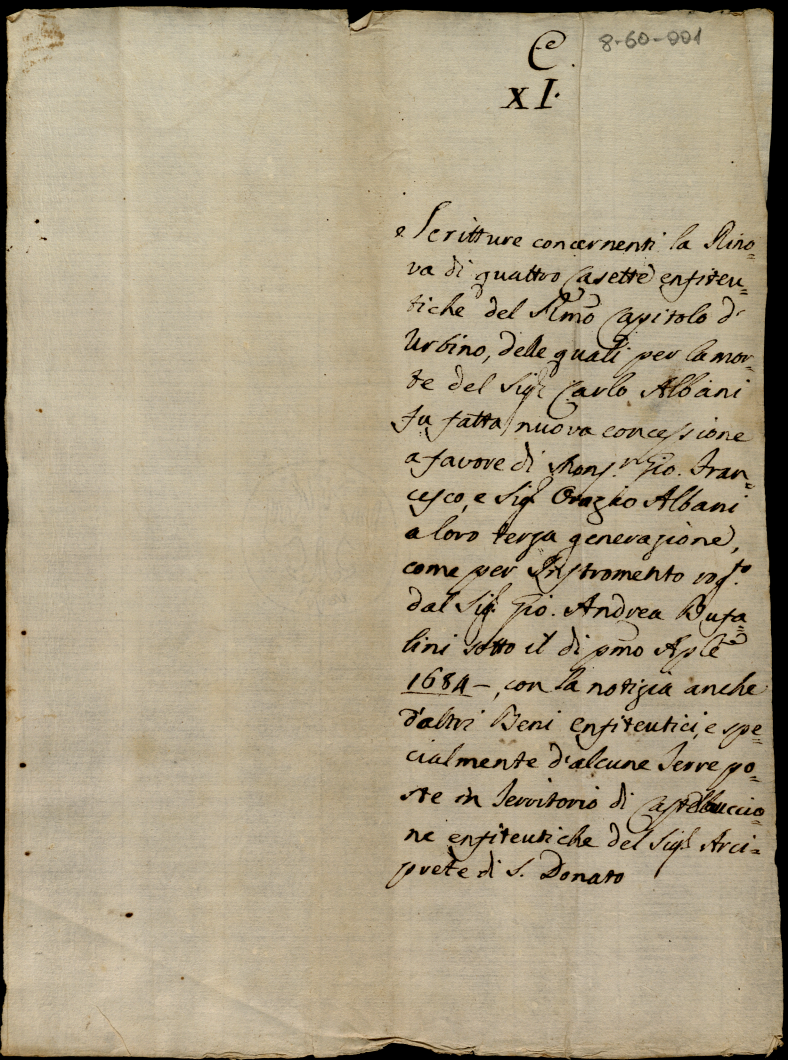 8-60-001
C.
XI.
Scritture concernenti la Rino=
va di quattro Casette enfiteu=
tiche del Rmo Capitolo d'
Urbino, delle quali per la mor=
te del Sigr Carlo Albani
fu fatta nuova concessione
a favore di Monsr Gio. Fran=
cesco, e Sigr Orazio Albani
a loro terza generazione,
come per Instromento rogto
dal Sigr Gio. Andrea Bufa=
lini sotto il di pmo Aple
1684 –, con la notizia anche
d'altri Beni enfiteutici, e spe=
cialmente d'alcune Terre po=
ste in Territorio di Castelbuccio=
ne enfiteutiche del Sigr Arci=
prete di S. Donato